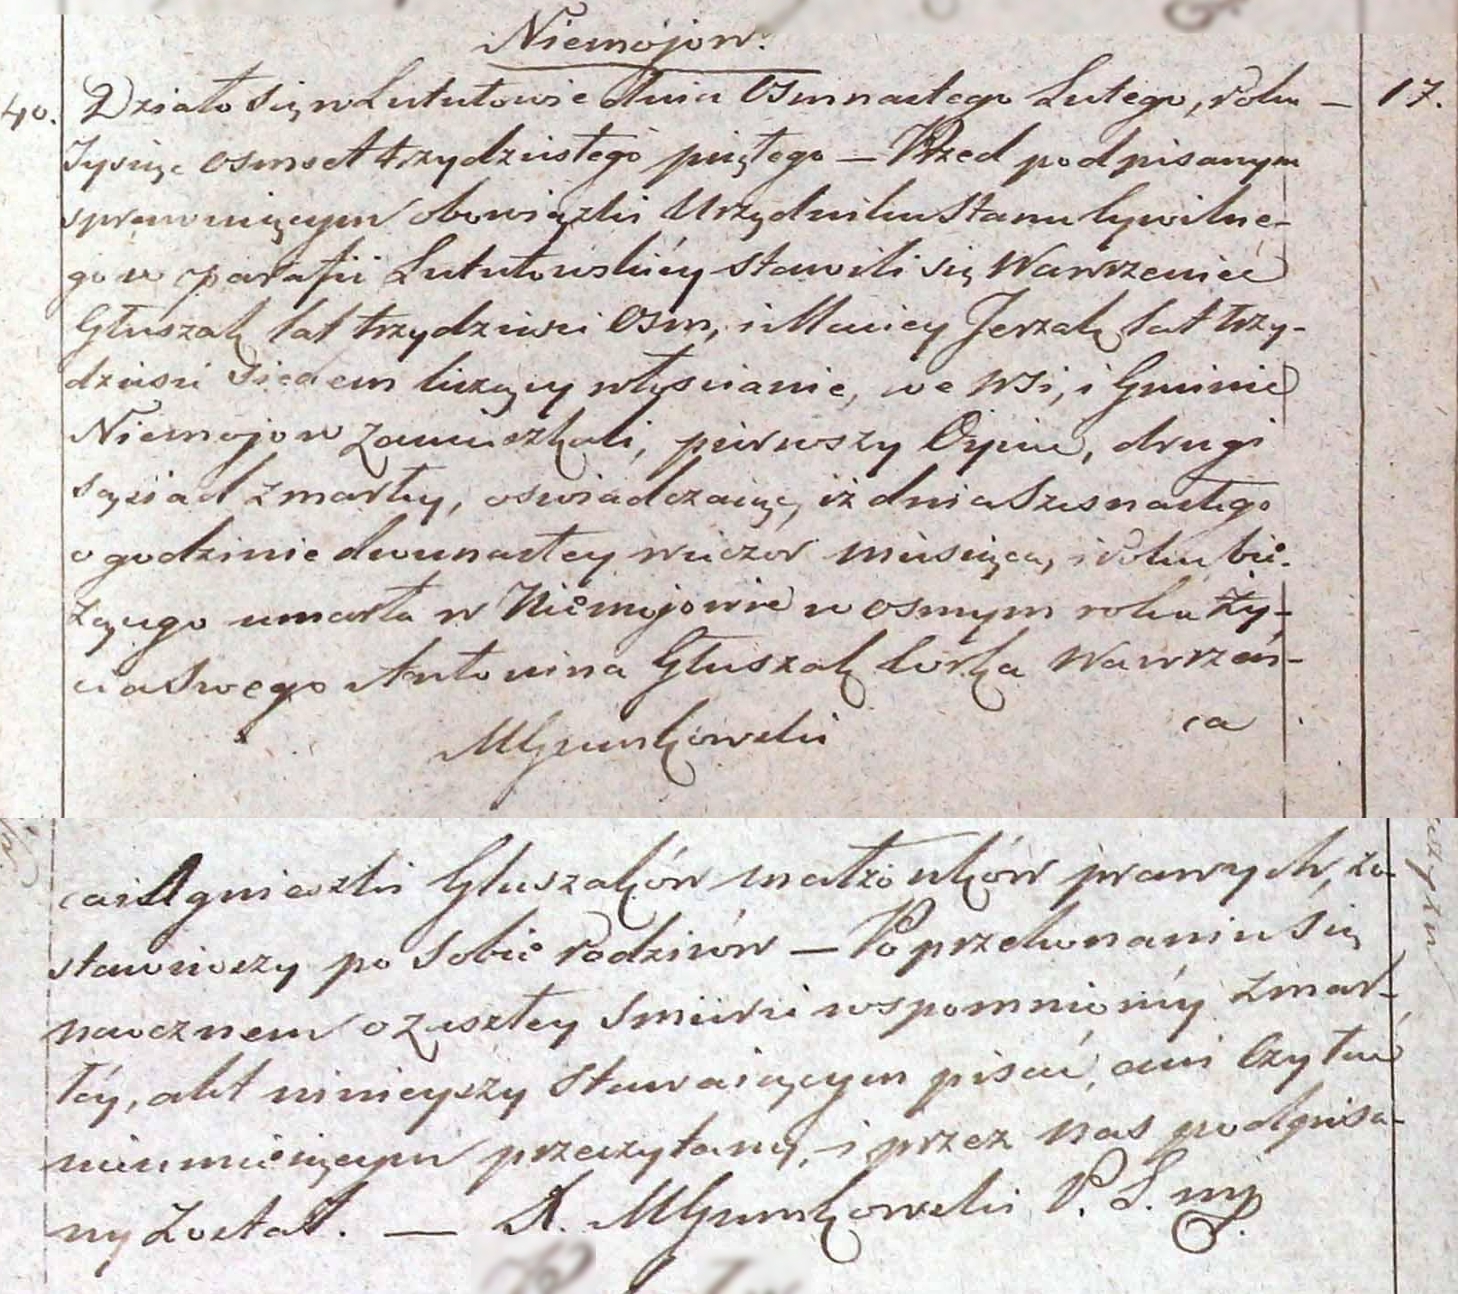 Niemojow.
40. Działo się w Lututowie dnia Osmnastego Lutego, roku — 17.
Tysiąc osmset trzydziestego piątego — Przed podpisanym
sprawuiącym obowiązki Urzędnika Stanu Cywilne-
go w parafii Lututowskiéy stawili się Wawrzeniec
Głuszak lat trzydzieści Osm, i Maciey Jerzak lat trzy-
dzieści siedem liczący włościanie, we wsi, i Gminie
Niemojow zamieszkali, pierwszy Oyciec, drugi
sąsiad zmarłey, oswiadczaiąc, iż dnia Szesnastego
o godzinie dwunastey wieczor miesiąca, i roku bie-
żącego umarła w Niemojowie w osmym roku ży-
cia Swego Antonina Głuszak Corka Wawrzeń-
ca
MGrunkowski
ca i Agnieszki Głuszaków małżonków prawych, zo-
stawiwszy po sobie rodziców — Po przekonaniu się
naocznem o zeszłey śmierci wspomnionéy zmar-
łéy, akt ninieyszy stawaiącym pisać, ani Czytać
nieumieiącym przeczytany, i przez nas podpisa-
ny Został. — X. MGrunkowski P. L. mp